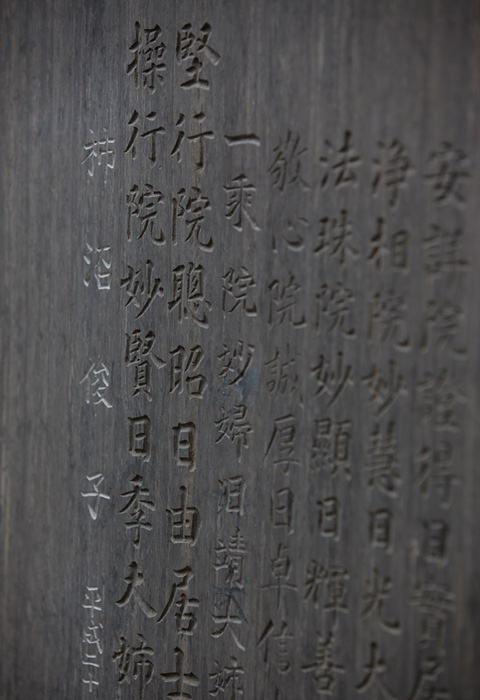 安詳院證得日實居
浄相院妙慧日光大
法珠院妙顯日輝善
敬心院誠厚日卓信
一乘院妙婦日靖大姉
堅行院聰昭日由居士
操行院妙賢日季大姉
柿沼俊子 平成二十